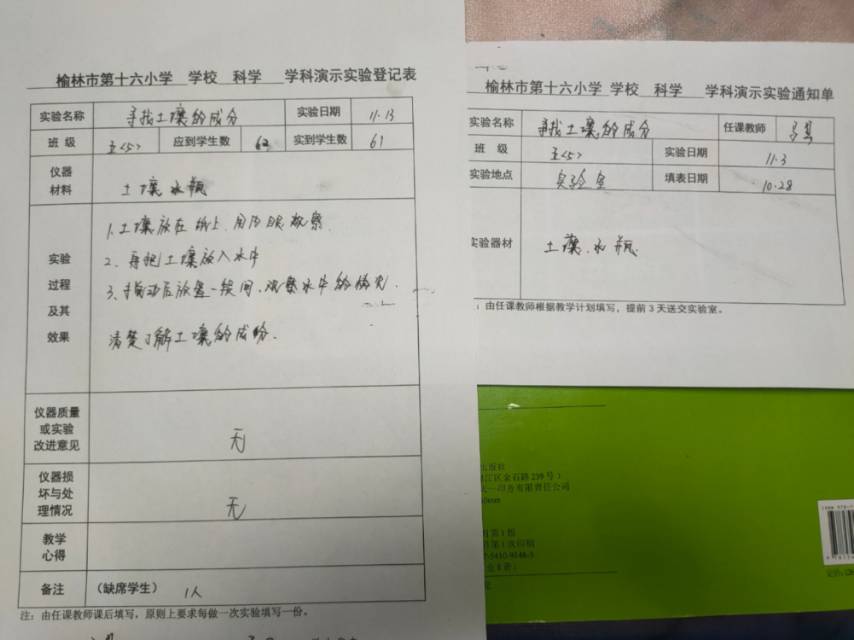 榆林市第十六小学 学校 科学 学科演示实验登记表
实验名称 寻找土壤的成分 实验日期 11.13
班 级 五<5> 应到学生数 62 实到学生数 61
仪器
材料
土壤 水瓶
实验
过程
及其
效果
1.土壤放在纸上.用肉眼观察.
2、再把土壤放入水中
3、搅动后放置一段间、观察水中的情况.
清楚了解土壤的成份.
仪器质量
或实验
改进意见
无
仪器损
坏与处
理情况
无
教学
心得
备注 (缺席学生) 1人
注：由任课教师课后填写，原则上要求每做一次实验填写一份。
榆林市第十六小学 学校 科学 学科演示实验通知单
实验名称 寻找土壤的成分 任课教师
班 级 五<5> 实验日期 11.3
实验地点 实验室 填表日期 10.28
实验器材 土壤、水瓶
：由任课教师根据教学计划填写，提前 3 天送交实验室。
出版社
江区金石路 239 号）
印务有限责任公司
月第 1 版
月第 1 次印刷
5410-9146-3